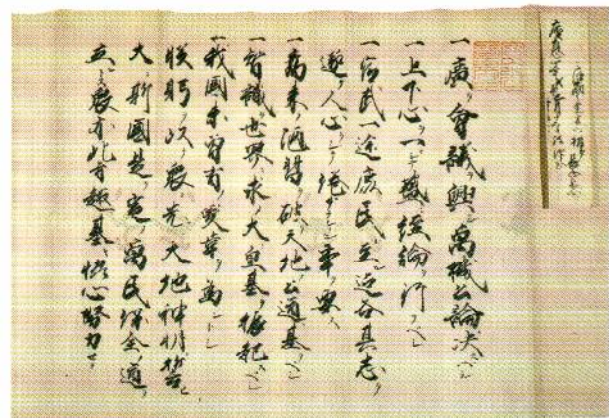 一廣ク會議ヲ興シ萬機公論ニ決スヘシ
一上下心ヲ一ニシテ盛ニ經綸ヲ行フヘシ
一官武一途庶民ニ至ル迄各其志ヲ
遂ケ人心ヲシテ倦マサラシメン事ヲ要ス
一舊来ノ陋習ヲ破リ天地ノ公道ニ基クヘシ
一智識ヲ世界ニ求メ大ニ皇基ヲ振起スヘシ
我國未曾有ノ變革ヲ為ントシ
朕躬ヲ以テ衆ニ先シ天地神明ニ誓ヒ
大ニ斯國是ヲ定メ萬民保全ノ道ヲ
立ントス衆亦此旨趣ニ基キ協心努力セヨ